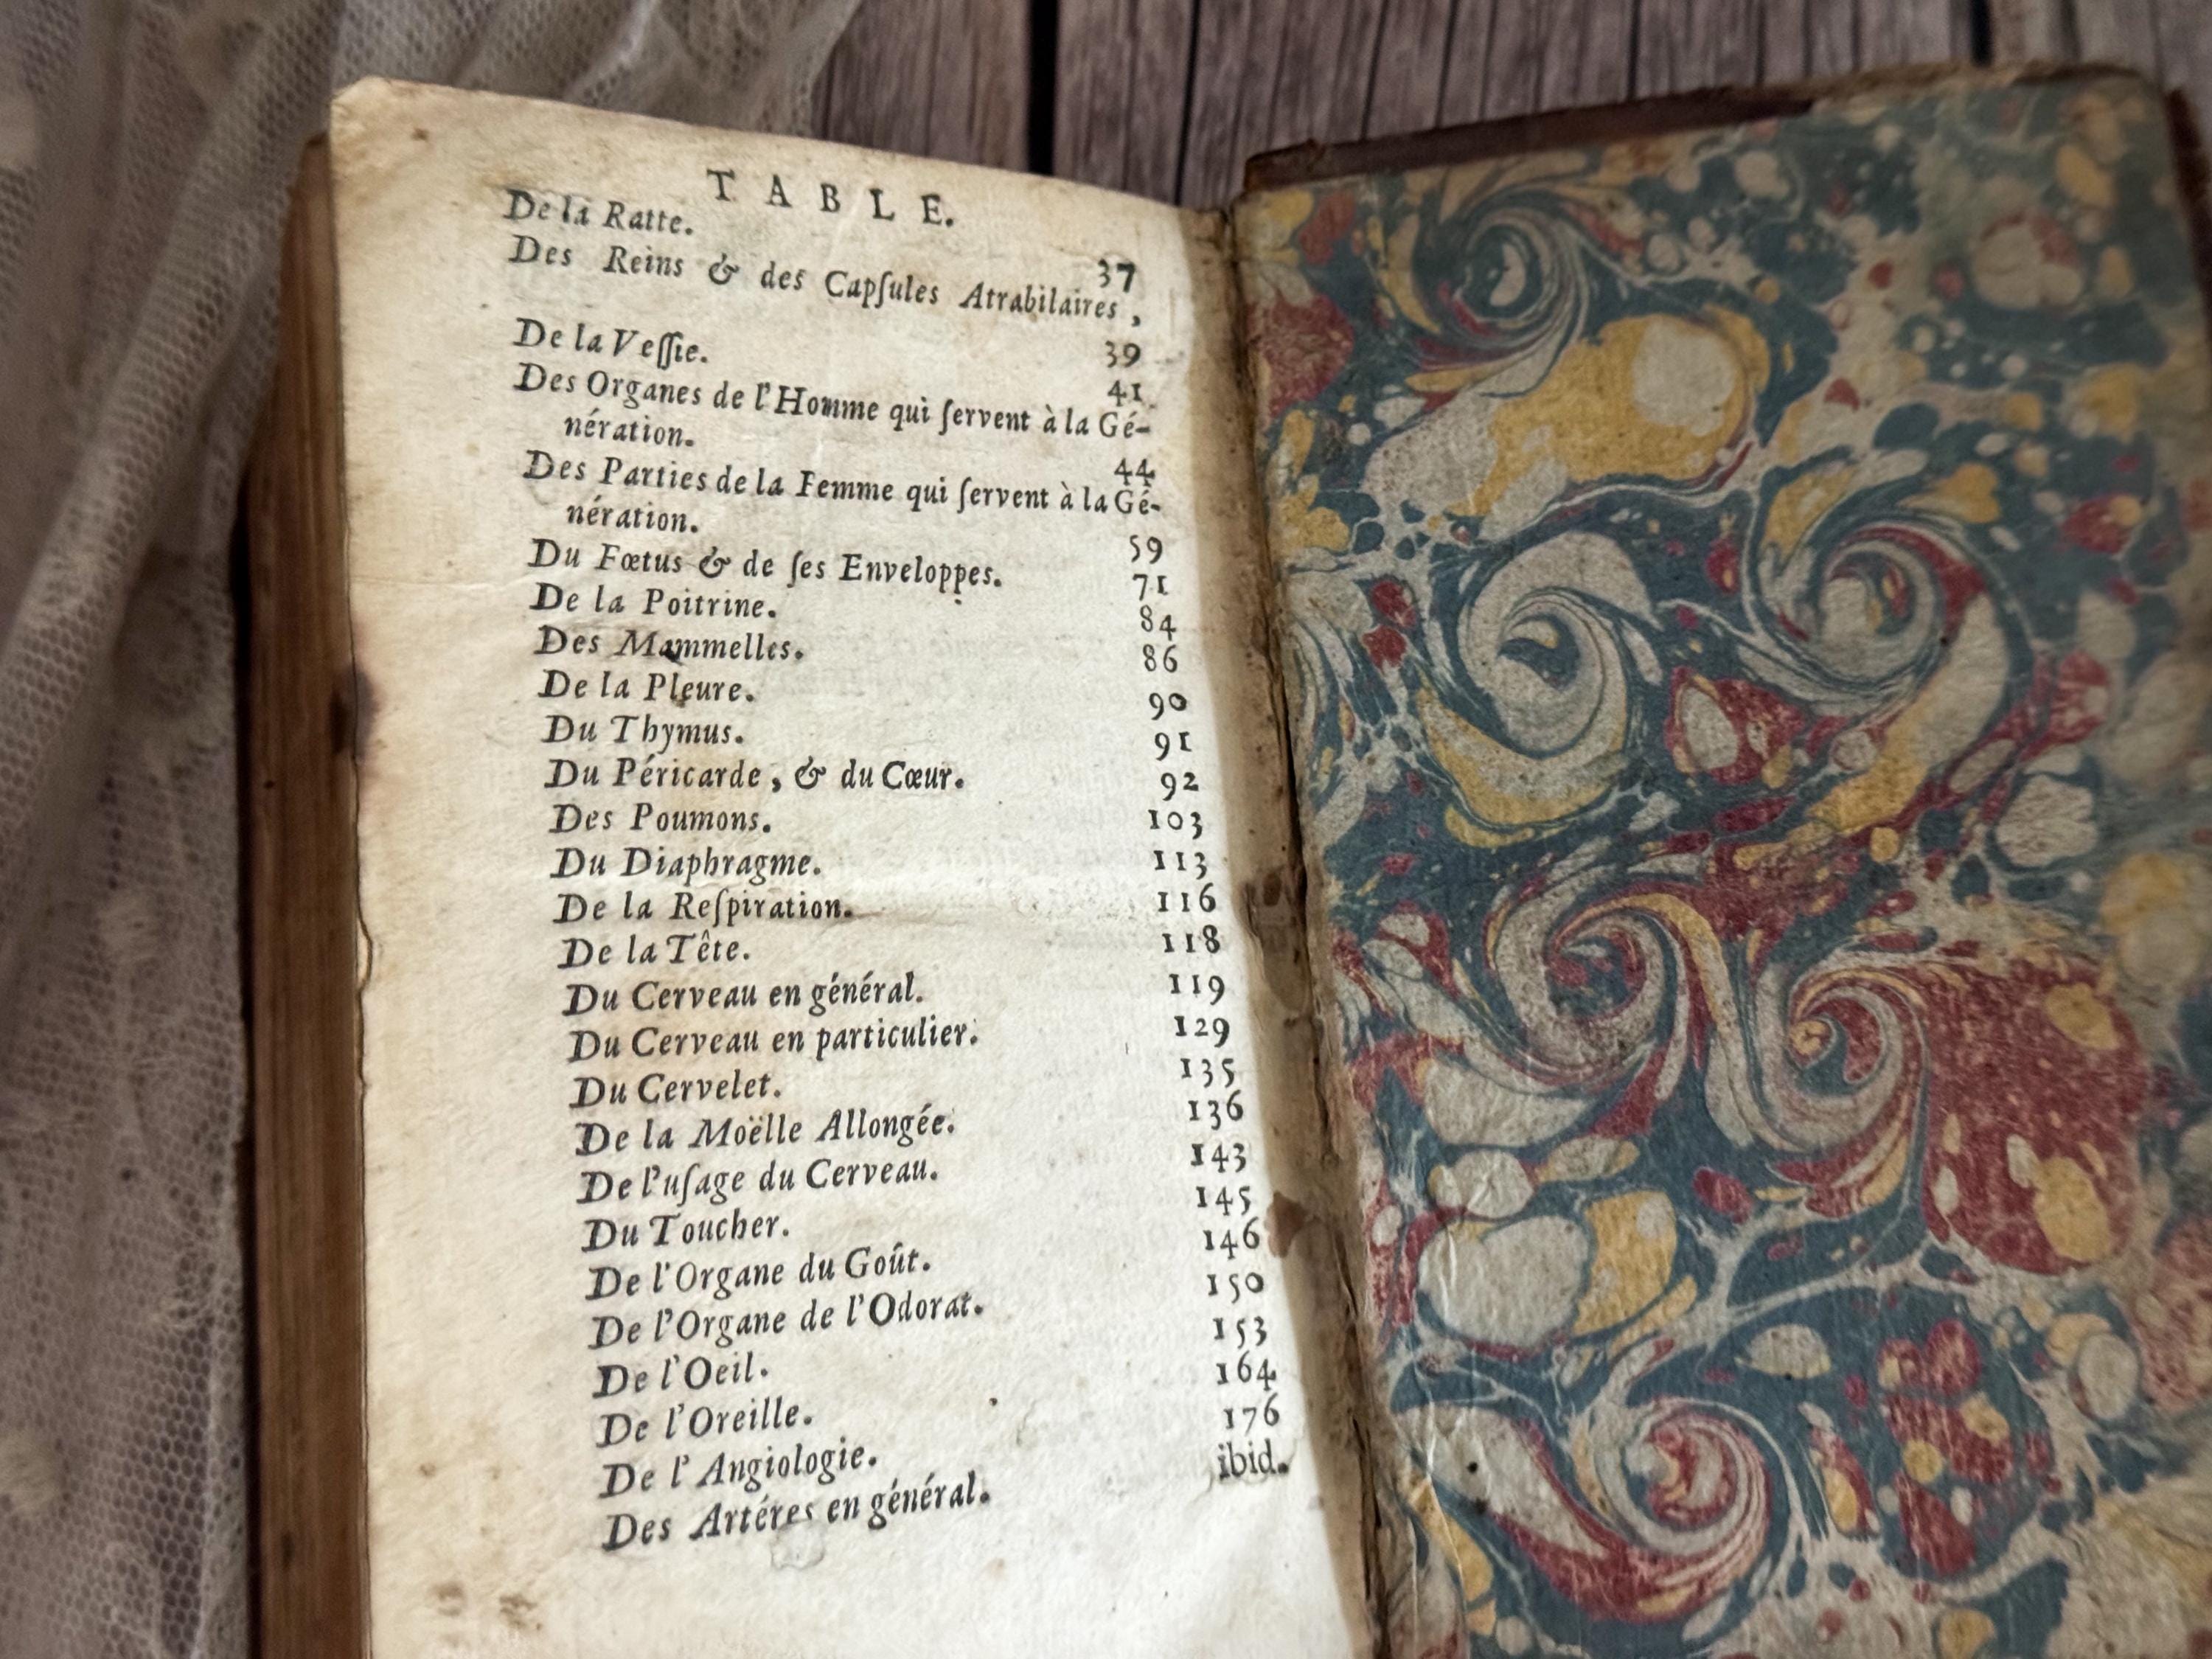 TABLE.
De la Ratte. 37
Des Reins & des Capſules Atrabilaires,
39
De la Veſſie. 41
Des Organes de l'Homme qui ſervent à la Gé-
nération. 44
Des Parties de la Femme qui ſervent à la Gé-
nération. 59
Du Fœtus & de ſes Enveloppes. 71
De la Poitrine. 84
Des Mammelles. 86
De la Pleure. 90
Du Thymus. 91
Du Péricarde, & du Cœur. 92
Des Poumons. 103
Du Diaphragme. 113
De la Reſpiration. 116
De la Tête. 118
Du Cerveau en général. 119
Du Cerveau en particulier. 129
Du Cervelet. 135
De la Moëlle Allongée. 136
De l'uſage du Cerveau. 143
Du Toucher. 145
De l'Organe du Goût. 146
De l'Organe de l'Odorat. 150
De l'Oeil. 153
De l'Oreille. 164
De l'Angiologie. 176
Des Artéres en général. ibid.